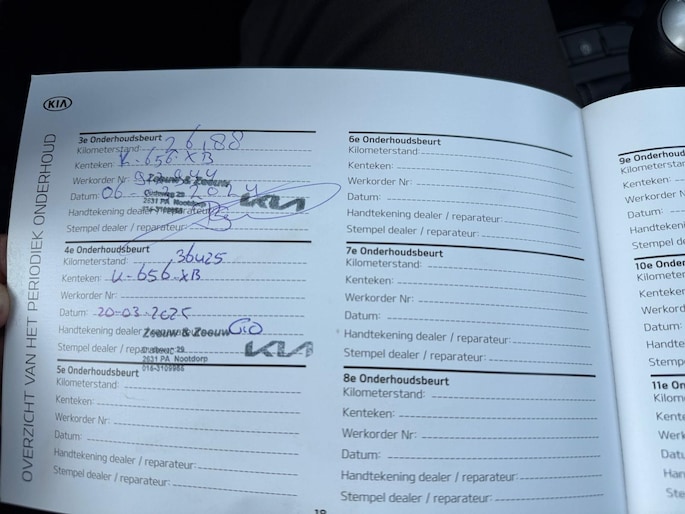 KIA
OVERZICHT VAN HET PERIODIEK ONDERHOUD
3e Onderhoudsbeurt
Kilometerstand:
Kenteken: K-656-XB
Werkorder Nr:
Datum: 06 2024
Zeeuw & Zeeuw
2631 PA Nootdorp
KIA
Handtekening dealer / reparateur:
Stempel dealer / reparateur:
4e Onderhoudsbeurt
Kilometerstand: 36425
Kenteken: K-656-XB
Werkorder Nr:
Datum: 20-03-2025
Handtekening dealer
Zeeuw & Zeeuw
Stempel dealer / reparateur:
2631 PA Nootdorp
KIA
5e Onderhoudsbeurt
Kilometerstand:
Kenteken:
Werkorder Nr:
Datum:
Handtekening dealer / reparateur:
Stempel dealer / reparateur:
6e Onderhoudsbeurt
Kilometerstand:
Kenteken:
Werkorder Nr:
Datum:
Handtekening dealer / reparateur:
Stempel dealer / reparateur:
7e Onderhoudsbeurt
Kilometerstand:
Kenteken:
Werkorder Nr:
Datum:
Handtekening dealer / reparateur:
Stempel dealer / reparateur:
8e Onderhoudsbeurt
Kilometerstand:
Kenteken:
Werkorder Nr:
Datum:
Handtekening dealer / reparateur:
Stempel dealer / reparateur:
9e Onderhoud
Kilometerstand
Kenteken:
Werkorder N
Datum:
Handteken
Stempel de
10e Onder
Kilometer
Kenteker
Werkord
Datum:
Handte
Stemp
11e On
Kilom
Kent
Werk
Datu
Han
Ste